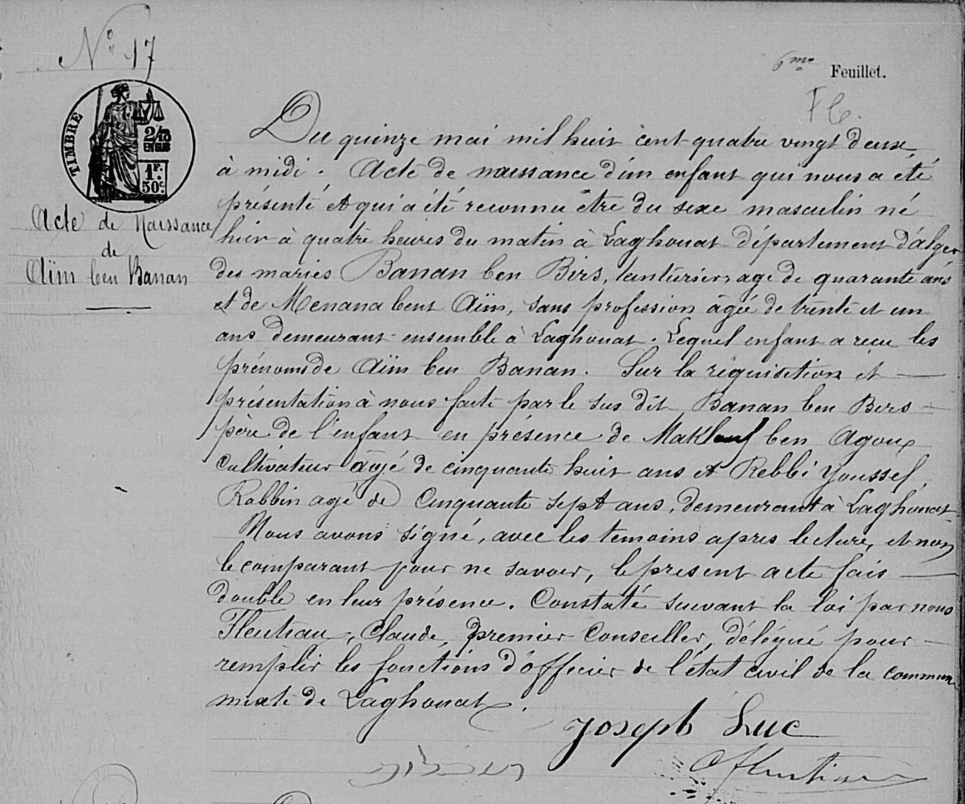 N° 17
6me Feuillet.
TIMBRE
2/10
EN SUS
1F.
50c.
Acte de Naissance
de
Aïm ben Banan
Du quinze mai mil huit cent quatre vingt deux,
à midi. Acte de naissance d'un enfant qui nous a été
présenté et qui a été reconnu être du sexe masculin né
hier à quatre heures du matin à Laghouat département d'alger
des mariés Banan ben Birs, age de quarante ans
et de Menana bent Aïm, sans profession âgée de trente et un
ans demeurant ensemble à Laghouat. Lequel enfant a reçu les
prénoms de Aïm ben Banan. Sur la réquisition et
présentation à nous faite par le sus dit Banan ben Birs
père de l'enfant en présence de Maklouf ben Agoux
cultivateur âgé de cinquante huit ans et Rebbi Youssef,
Rabbin agé de cinquante sept ans, demeurant à Laghouat
Nous avons signé, avec les temoins apres lecture, et non
le comparant pour ne savoir, le present acte fais
double en leur présence. Constaté suivant la loi par nous
Fleuteau, Claude, premier Conseiller, délégué pour
remplir les fonctions d'officier de l'état civil de la commune
mixte de Laghouat.
Joseph Luc